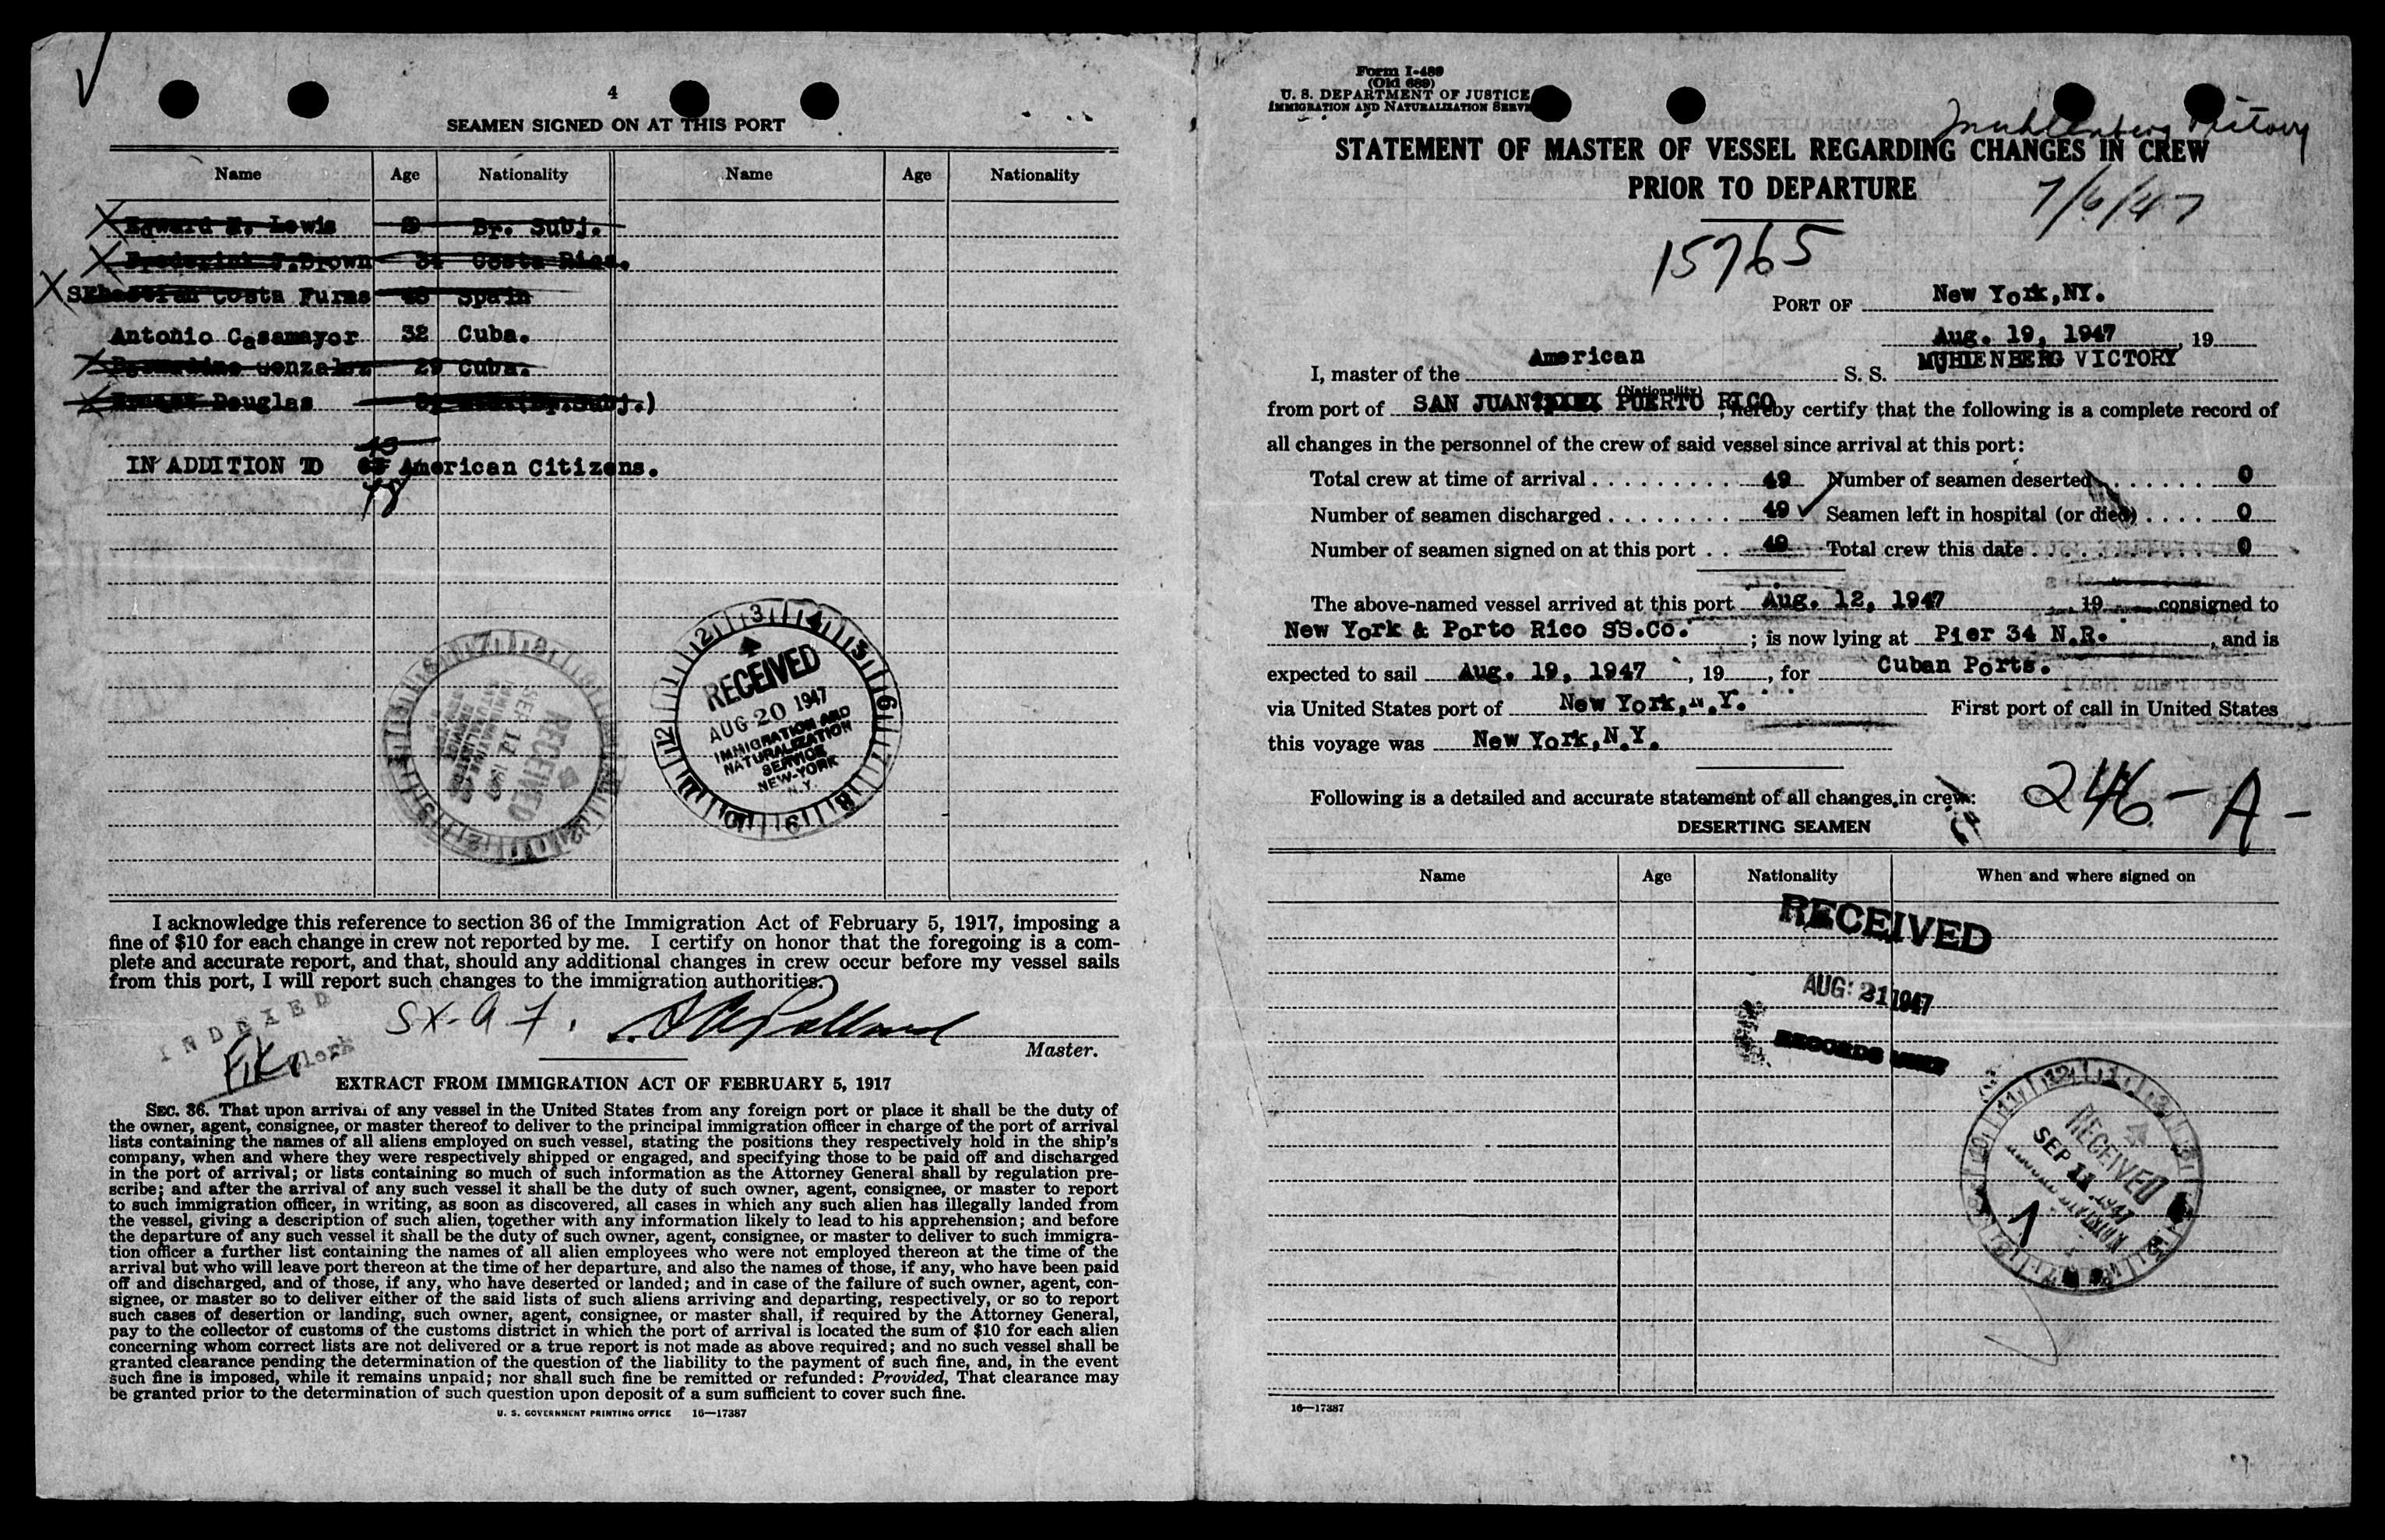 4
SEAMEN SIGNED ON AT THIS PORT
Name Age Nationality Name Age Nationality
Edward Lewis Br. Subj.
J.Brown 34 Costa Rica.
Costa Furns Spain
Antonio Casamayor 32 Cuba.
29 Cuba.
Douglas
45
IN ADDITION TO American Citizens.
RECEIVED
AUG 20 1947
IMMIGRATION AND
NATURALIZATION
SERVICE
NEW-YORK
N.Y.
I acknowledge this reference to section 36 of the Immigration Act of February 5, 1917, imposing a
fine of $10 for each change in crew not reported by me. I certify on honor that the foregoing is a com-
plete and accurate report, and that, should any additional changes in crew occur before my vessel sails
from this port, I will report such changes to the immigration authorities.
INDEXED
Clerk
Master.
EXTRACT FROM IMMIGRATION ACT OF FEBRUARY 5, 1917
SEC. 36. That upon arrival of any vessel in the United States from any foreign port or place it shall be the duty of
the owner, agent, consignee, or master thereof to deliver to the principal immigration officer in charge of the port of arrival
lists containing the names of all aliens employed on such vessel, stating the positions they respectively hold in the ship's
company, when and where they were respectively shipped or engaged, and specifying those to be paid off and discharged
in the port of arrival; or lists containing so much of such information as the Attorney General shall by regulation pre-
scribe; and after the arrival of any such vessel it shall be the duty of such owner, agent, consignee, or master to report
to such immigration officer, in writing, as soon as discovered, all cases in which any such alien has illegally landed from
the vessel, giving a description of such alien, together with any information likely to lead to his apprehension; and before
the departure of any such vessel it shall be the duty of such owner, agent, consignee, or master to deliver to such immigra-
tion officer a further list containing the names of all alien employees who were not employed thereon at the time of the
arrival but who will leave port thereon at the time of her departure, and also the names of those, if any, who have been paid
off and discharged, and of those, if any, who have deserted or landed; and in case of the failure of such owner, agent, con-
signee, or master so to deliver either of the said lists of such aliens arriving and departing, respectively, or so to report
such cases of desertion or landing, such owner, agent, consignee, or master shall, if required by the Attorney General,
pay to the collector of customs of the customs district in which the port of arrival is located the sum of $10 for each alien
concerning whom correct lists are not delivered or a true report is not made as above required; and no such vessel shall be
granted clearance pending the determination of the question of the liability to the payment of such fine, and, in the event
such fine is imposed, while it remains unpaid; nor shall such fine be remitted or refunded: Provided, That clearance may
be granted prior to the determination of such question upon deposit of a sum sufficient to cover such fine.
U. S. GOVERNMENT PRINTING OFFICE 16—17387
Form I-489
(Old 689)
U. S. DEPARTMENT OF JUSTICE
IMMIGRATION AND NATURALIZATION
Muhlenberg Victory
STATEMENT OF MASTER OF VESSEL REGARDING CHANGES IN CREW
PRIOR TO DEPARTURE
7/6/47
15765
PORT OF New York,NY.
Aug. 19, 1947, 19
I, master of the American S. S. MUHLENBERG VICTORY
(Nationality)
from port of SAN JUAN PUERTO RICO, hereby certify that the following is a complete record of
all changes in the personnel of the crew of said vessel since arrival at this port:
Total crew at time of arrival 49 Number of seamen deserted 0
Number of seamen discharged 49 ✓ Seamen left in hospital (or died) 0
Number of seamen signed on at this port 49 Total crew this date 0
The above-named vessel arrived at this port Aug. 12, 1947, 19 consigned to
New York & Porto Rico SS.Co. ; is now lying at Pier 34 N.R. , and is
expected to sail Aug. 19, 1947, 19, for Cuban Ports.
via United States port of New York,N.Y. First port of call in United States
this voyage was New York,N.Y.
Following is a detailed and accurate statement of all changes in crew: 246-A-
DESERTING SEAMEN
Name Age Nationality When and where signed on
RECEIVED
AUG 21 1947
RECORDS
RECEIVED
SEP 11 1947
DIVISION
1
16—17387